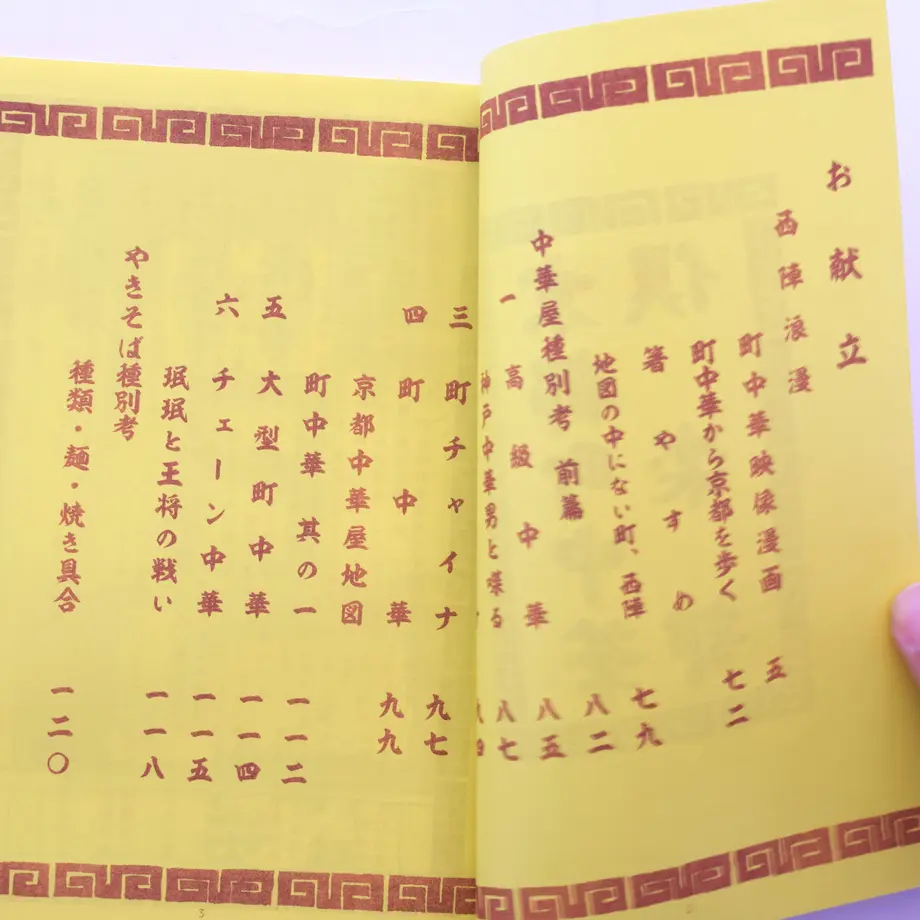 お献立
西陣浪漫
町中華映像漫画 五
町中華から京都を歩く 七二
箸やすめ
地図の中にない町、西陣 七九
中華屋種別考 前篇 八二
一 高級中華 八五
神戸中華男と喋る 八七
三 町チャイナ 九七
四 町中華 九九
京都中華屋地図
町中華 其の一 一一二
五 大型町中華 一一四
六 チェーン中華 一一五
珉珉と王将の戦い 一一八
やきそば種別考
種類・麺・焼き具合 一二〇
3